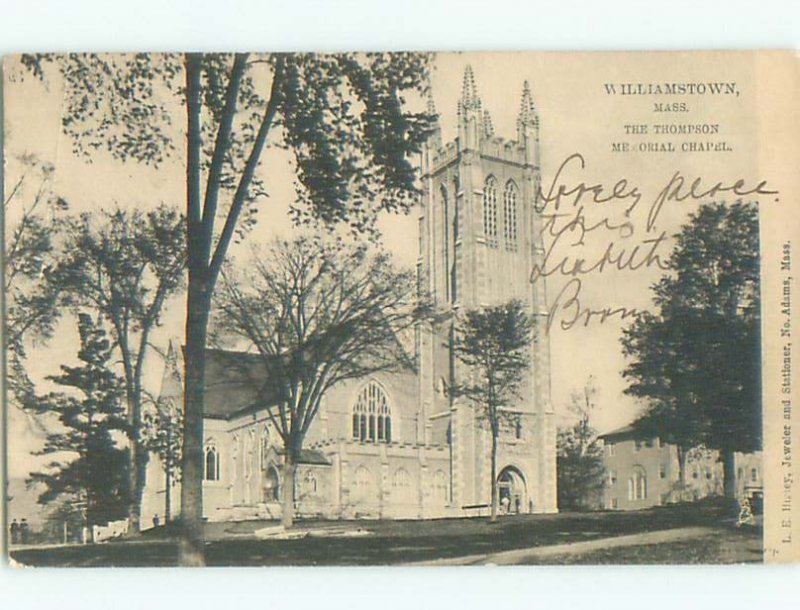 WILLIAMSTOWN,
MASS.
THE THOMPSON
MEMORIAL CHAPEL.
Lovely place
this
Brown
Jeweler and Stationer, No. Adams, Mass.